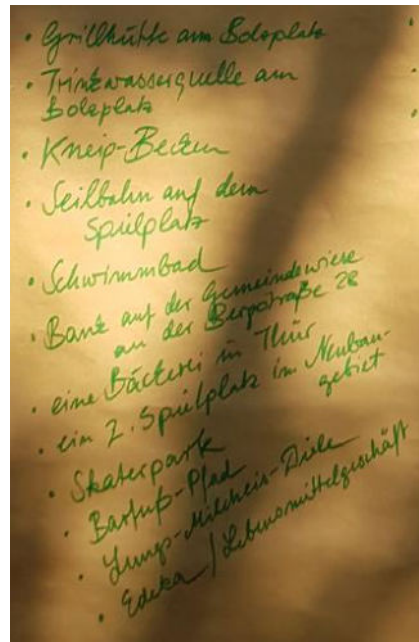 • Grillhütte am Bolzplatz
• Trinkwasserquelle am
Bolzplatz
• Kneip-Becken
• Seilbahn auf dem
Spielplatz
• Schwimmbad
• Bank auf der Gemeindewiese
an der Bergstraße 28
• eine Bäckerei in Thür
• ein 2. Spielplatz im Neubau-
gebiet
• Skaterpark
• Barfuß-Pfad
• Diele
• Edeka / Lebensmittelgeschäft